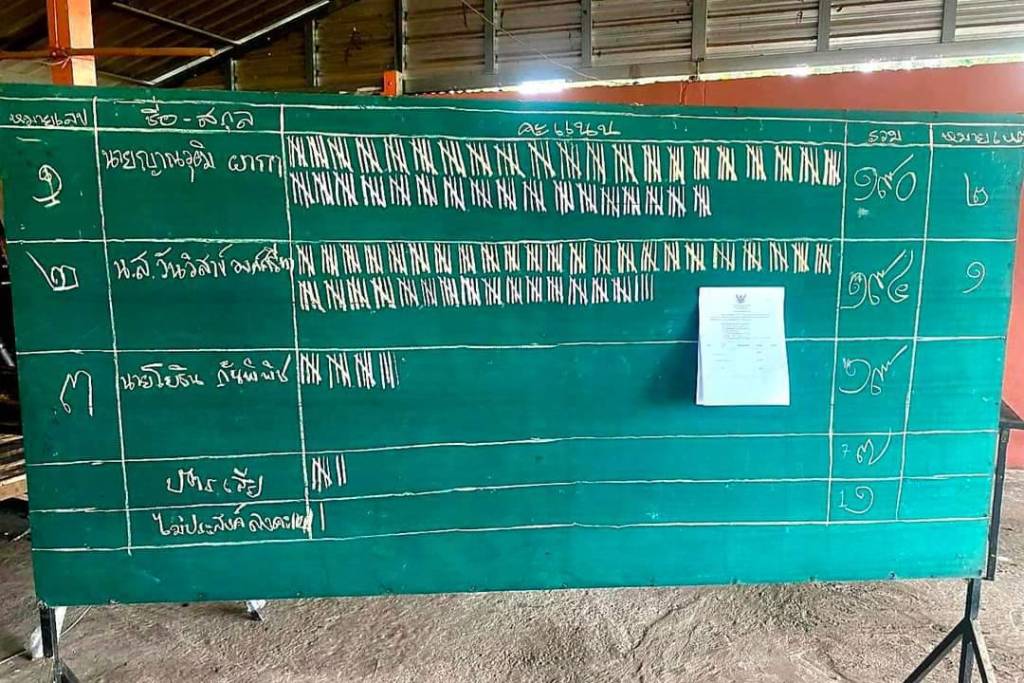 หมายเลข ชื่อ - สกุล คะแนน รวม หมายเหตุ
๑ นายญาณวุฒิ ผากา ๑๙๐ ๒
๒ น.ส.วันวิสาข์ องค์ศรีษะ ๑๙๔ ๑
๓ นายโยธิน กันพิพิช ๑๙
บัตรเสีย 7 ๗
ไม่ประสงค์ลงคะแนน 1 ๑